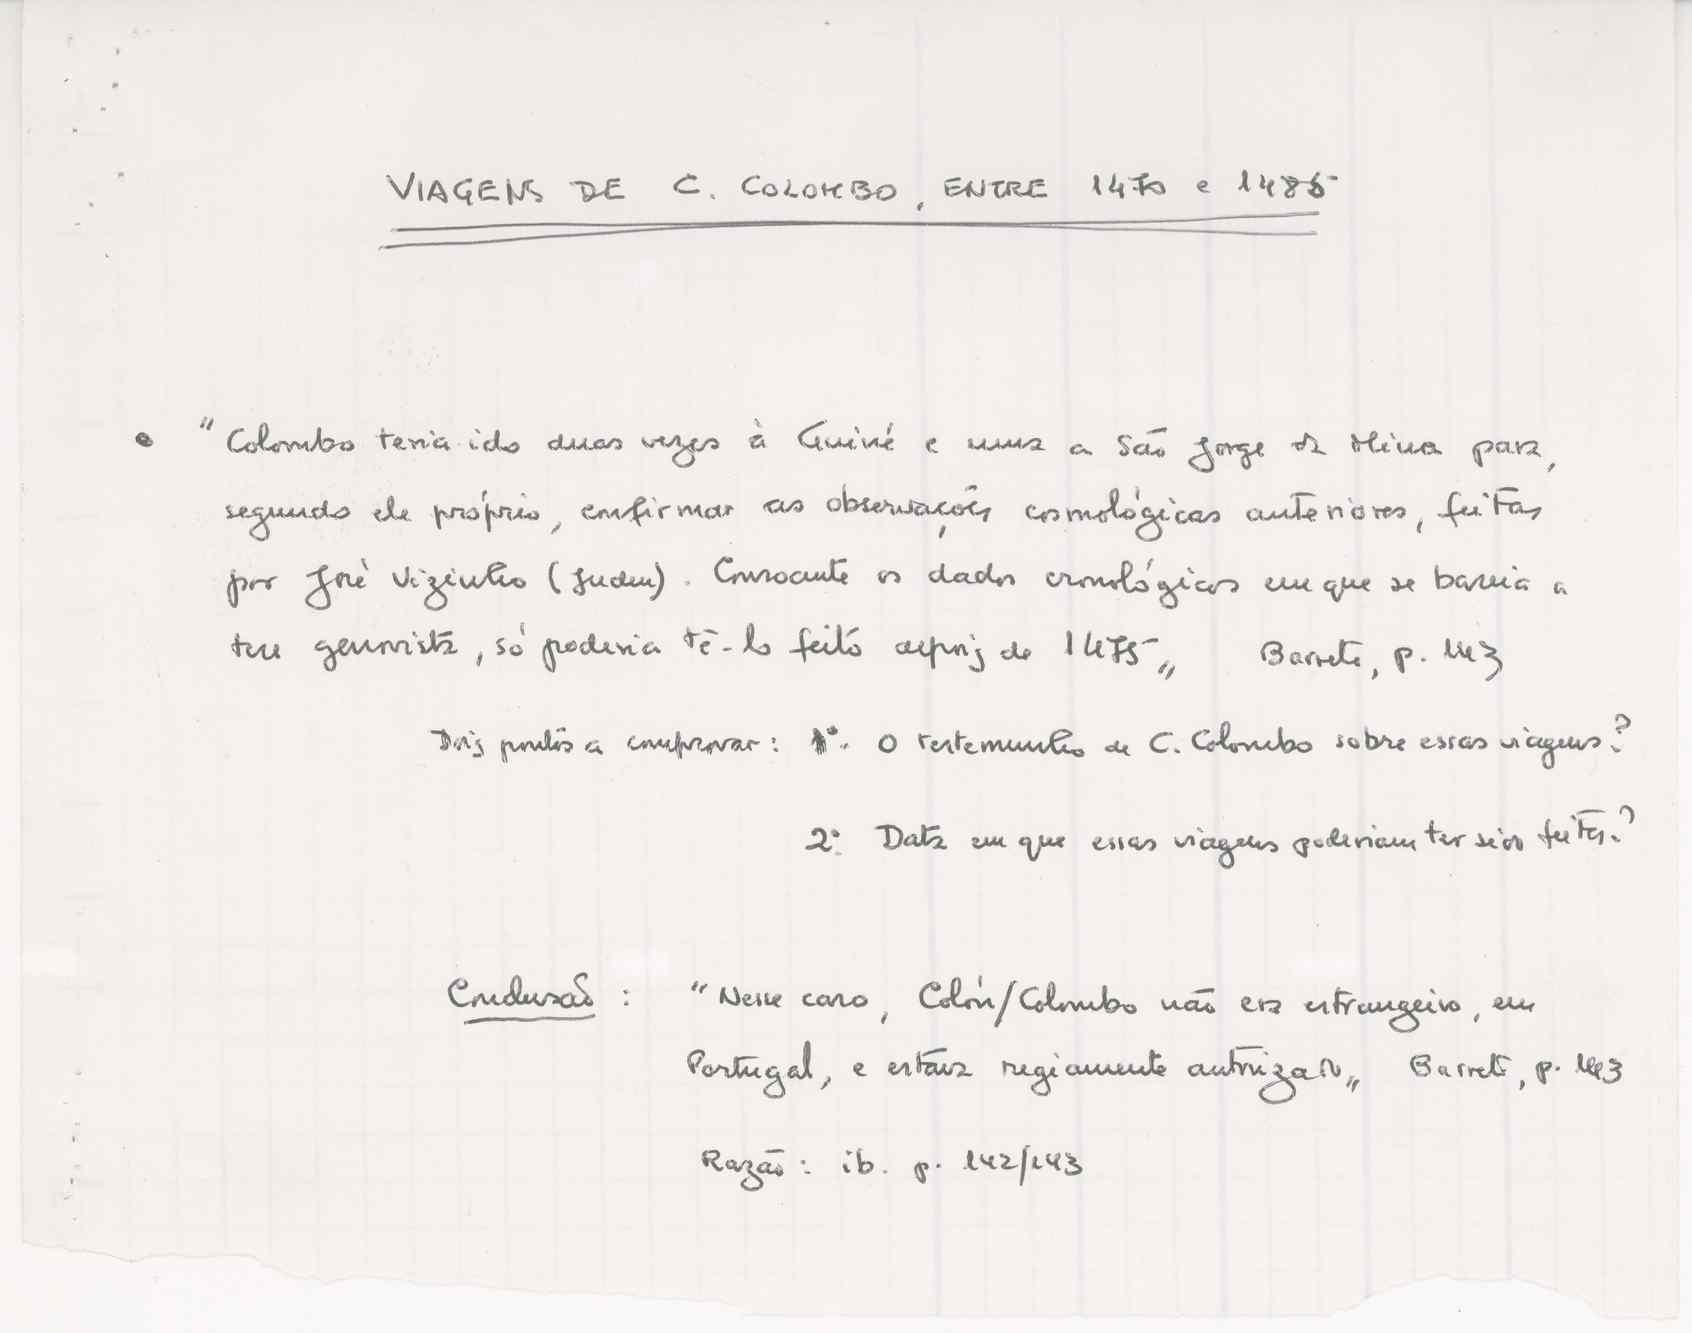 VIAGENS DE C. COLOMBO, ENTRE 1470 e 1485
• "Colombo teria ido duas vezes à Guiné e uma a São Jorge da Mina para,
segundo ele próprio, confirmar as observações cosmológicas anteriores, feitas
por José Vizinho (Judeu). Consoante os dados cronológicos em que se baseia a
tese genovista, só poderia tê-lo feito depois de 1475„ Barreto, p. 143
Dois pontos a comprovar: 1º. O testemunho de C. Colombo sobre essas viagens?
2º. Data em que essas viagens poderiam ter sido feitas?
Conclusão : "Nesse caso, Colón/Colombo não era estrangeiro, em
Portugal, e estava regiamente autorizado„ Barreto, p. 143
Razão: ib. p. 142/143